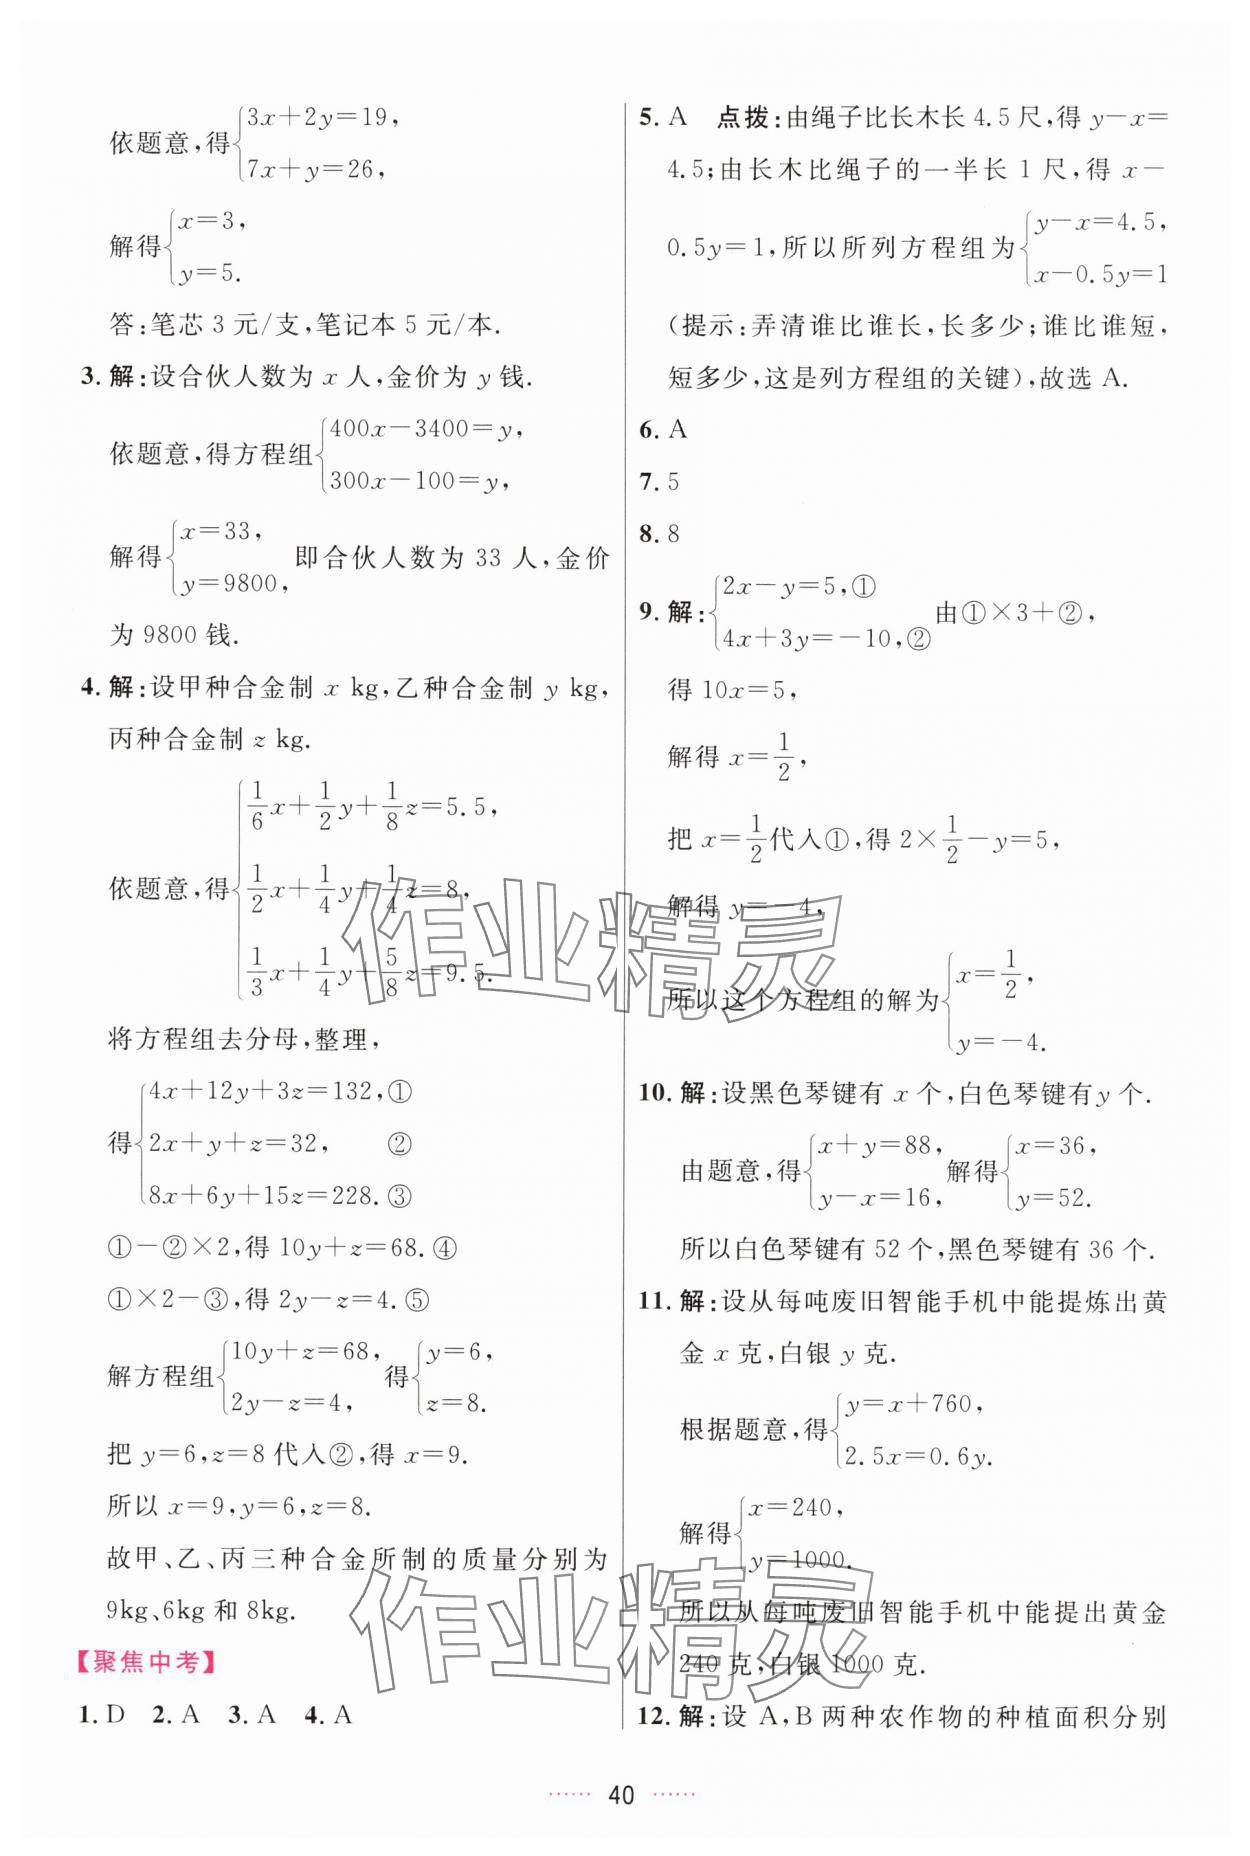 依题意,得{3x+2y=19,
7x+y=26,
解得{x=3,
y=5.
答:笔芯 3 元/支,笔记本 5 元/本.
3. 解:设合伙人数为 x 人,金价为 y 钱.
依题意,得方程组{400x-3400=y,
300x-100=y,
解得{x=33,
y=9800, 即合伙人数为 33 人,金价
为 9800 钱.
4. 解:设甲种合金制 x kg,乙种合金制 y kg,
丙种合金制 z kg.
依题意,得{1/6x+1/2y+1/8z=5.5,
1/2x+1/4y+1/4z=8,
1/3x+1/4y+5/8z=9.5.
将方程组去分母,整理,
得{4x+12y+3z=132,①
2x+y+z=32, ②
8x+6y+15z=228.③
①-②×2,得 10y+z=68.④
①×2-③,得 2y-z=4.⑤
解方程组{10y+z=68,
2y-z=4, 得{y=6,
z=8.
把 y=6,z=8 代入②,得 x=9.
所以 x=9,y=6,z=8.
故甲、乙、丙三种合金所制的质量分别为
9kg、6kg 和 8kg.
【聚焦中考】
1. D 2. A 3. A 4. A
5. A 点拨:由绳子比长木长 4.5 尺,得 y-x=
4.5;由长木比绳子的一半长 1 尺,得 x-
0.5y=1,所以所列方程组为{y-x=4.5,
x-0.5y=1
(提示:弄清谁比谁长,长多少;谁比谁短,
短多少,这是列方程组的关键),故选 A.
6. A
7. 5
8. 8
9. 解:{2x-y=5,①
4x+3y=-10,② 由①×3+②,
得 10x=5,
解得 x=1/2,
把 x=1/2代入①,得 2×1/2-y=5,
解得 y=-4,
所以这个方程组的解为{x=1/2,
y=-4.
10. 解:设黑色琴键有 x 个,白色琴键有 y 个.
由题意,得{x+y=88,
y-x=16, 解得{x=36,
y=52.
所以白色琴键有 52 个,黑色琴键有 36 个.
11. 解:设从每吨废旧智能手机中能提炼出黄
金 x 克,白银 y 克.
根据题意,得{y=x+760,
2.5x=0.6y.
解得{x=240,
y=1000.
所以从每吨废旧智能手机中能提出黄金
240 克,白银 1000 克.
12. 解:设 A,B 两种农作物的种植面积分别
40
作业精灵
作业精灵